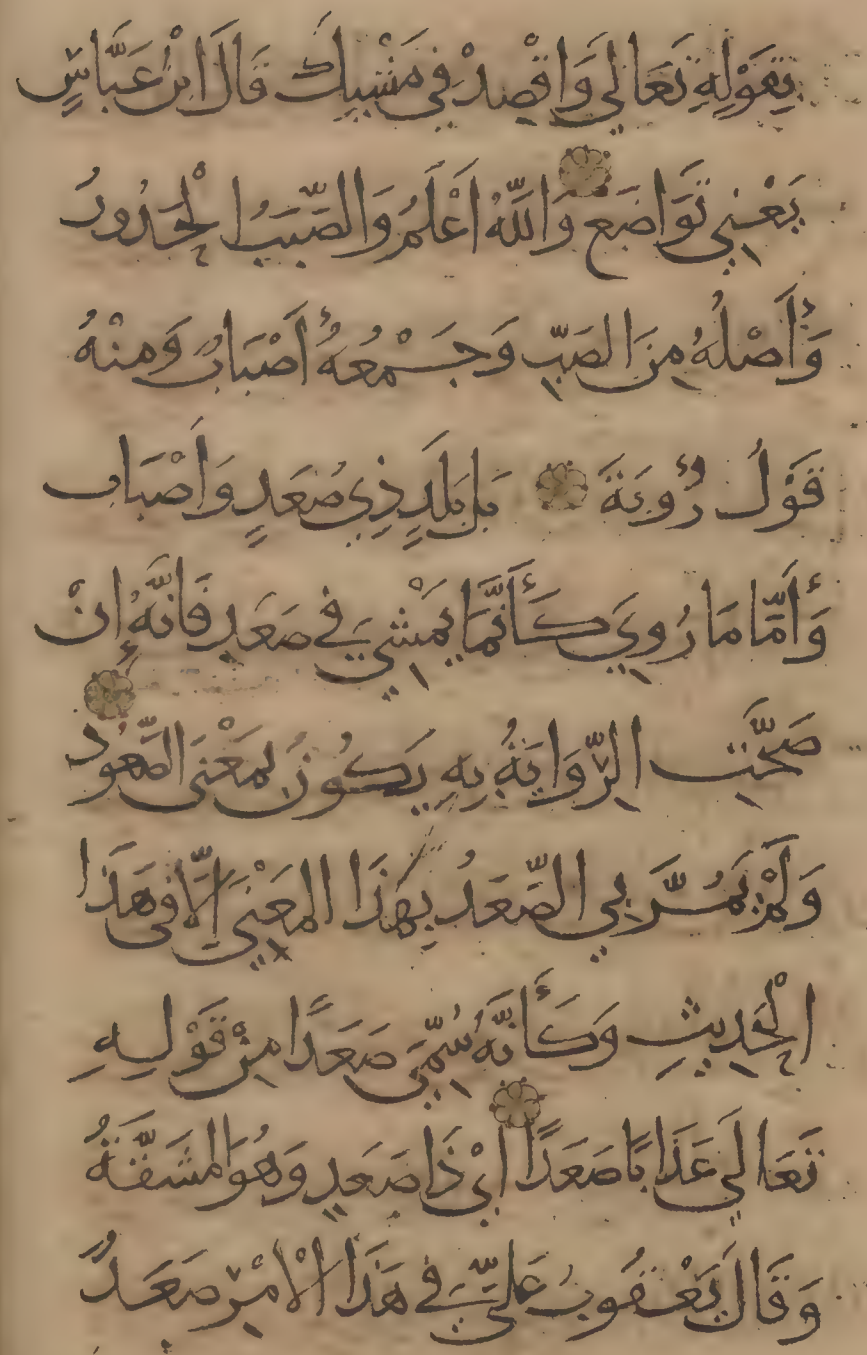 بِقَوْلِهِ تَعَالَي وَاقْصِدْ فِي مَشْيِكَ قَالَ ابْنُ عَبَّاسٍ
يَعْنِي تَوَاضَعْ وَاللَّهُ أَعْلَمُ وَالصَّبَبُ الْحَدُورُ
وَأَصْلُهُ مِنَ الصَّبِّ وَجَمْعُهُ أَصْبَابٌ وَمِنْهُ
قَوْلُ رُؤْبَةَ بَلْ بَلَدٍ ذِي صُعَدٍ وَأَصْبَابِ
وَأَمَّا مَا رُوِيَ كَأَنَّمَا يَمْشِي فِي صَعَدٍ فَانَّهُ إِنْ
صَحَّتِ الرِّوَايَةُ بِهِ يَكُونُ بِمَعْنَى الصُّعُودِ
وَلَمْ يَمُرَّ بِي الصَّعَدُ بِهَذَا الْمَعْنَى إِلَّا فِي هَذَا
الْحَدِيثِ وَكَأَنَّهُ سُمِّيَ صَعَدًا مِنْ قَوْلِهِ
تَعَالَي عَذَابًا صَعَدًا أَيْ ذَا صَعَدٍ وَهُوَ الْمَشَقَّةُ
وَقَالَ يَعْقُوبُ عَلَيَّ فِي هَذَا الْأَمْرِ صَعَدٌ